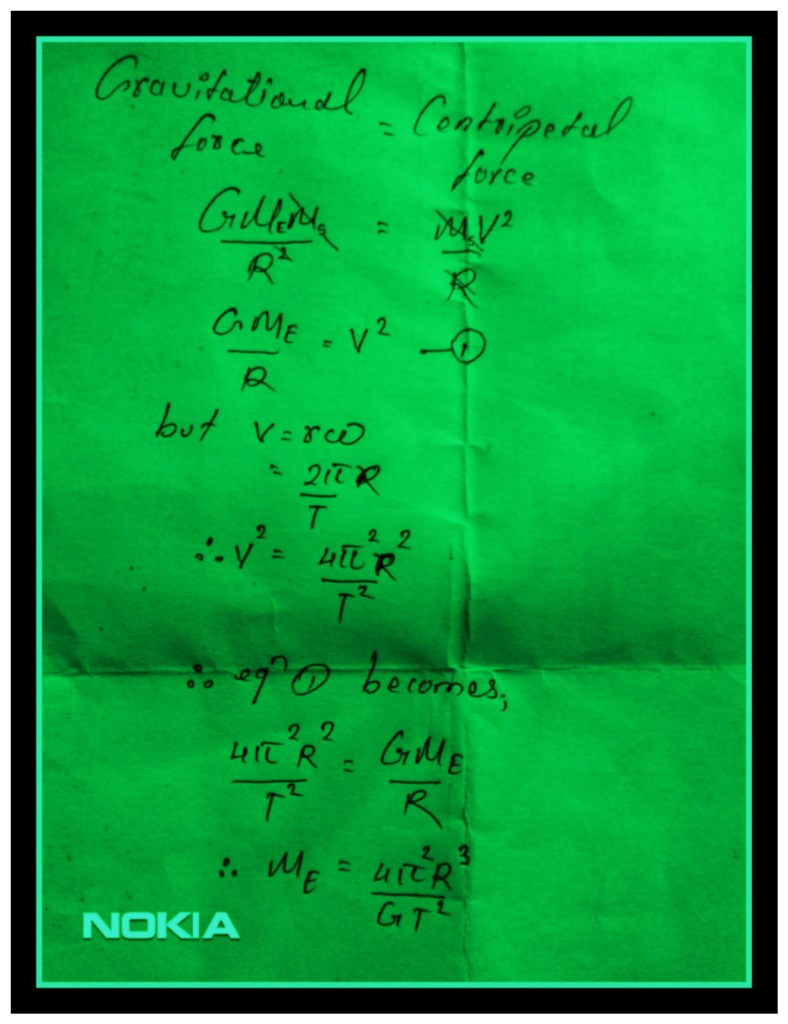 Gravitational force = Centripetal force
GM_E M_s / R² = M_s V² / R
GM_E / R = V² — ①
but V = rω
= 2π R / T
∴ V² = 4π² R² / T²
∴ eqⁿ ① becomes;
4π² R² / T² = GM_E / R
∴ M_E = 4π² R³ / G T²
NOKIA